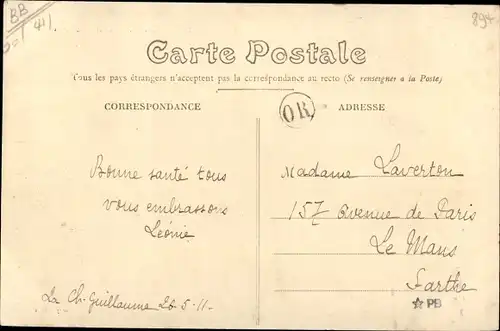 BB
41
894
Carte Postale
Tous les pays étrangers n'acceptent pas la correspondance au recto (Se renseigner a la Poste)
CORRESPONDANCE
OR
ADRESSE
Bonne santé tous
vous embrassons
Léonie
La Ch. Guillaume 26-5-11-
Madame Laverton
157 Avenue de Paris
Le Mans
Sarthe
☆ PB